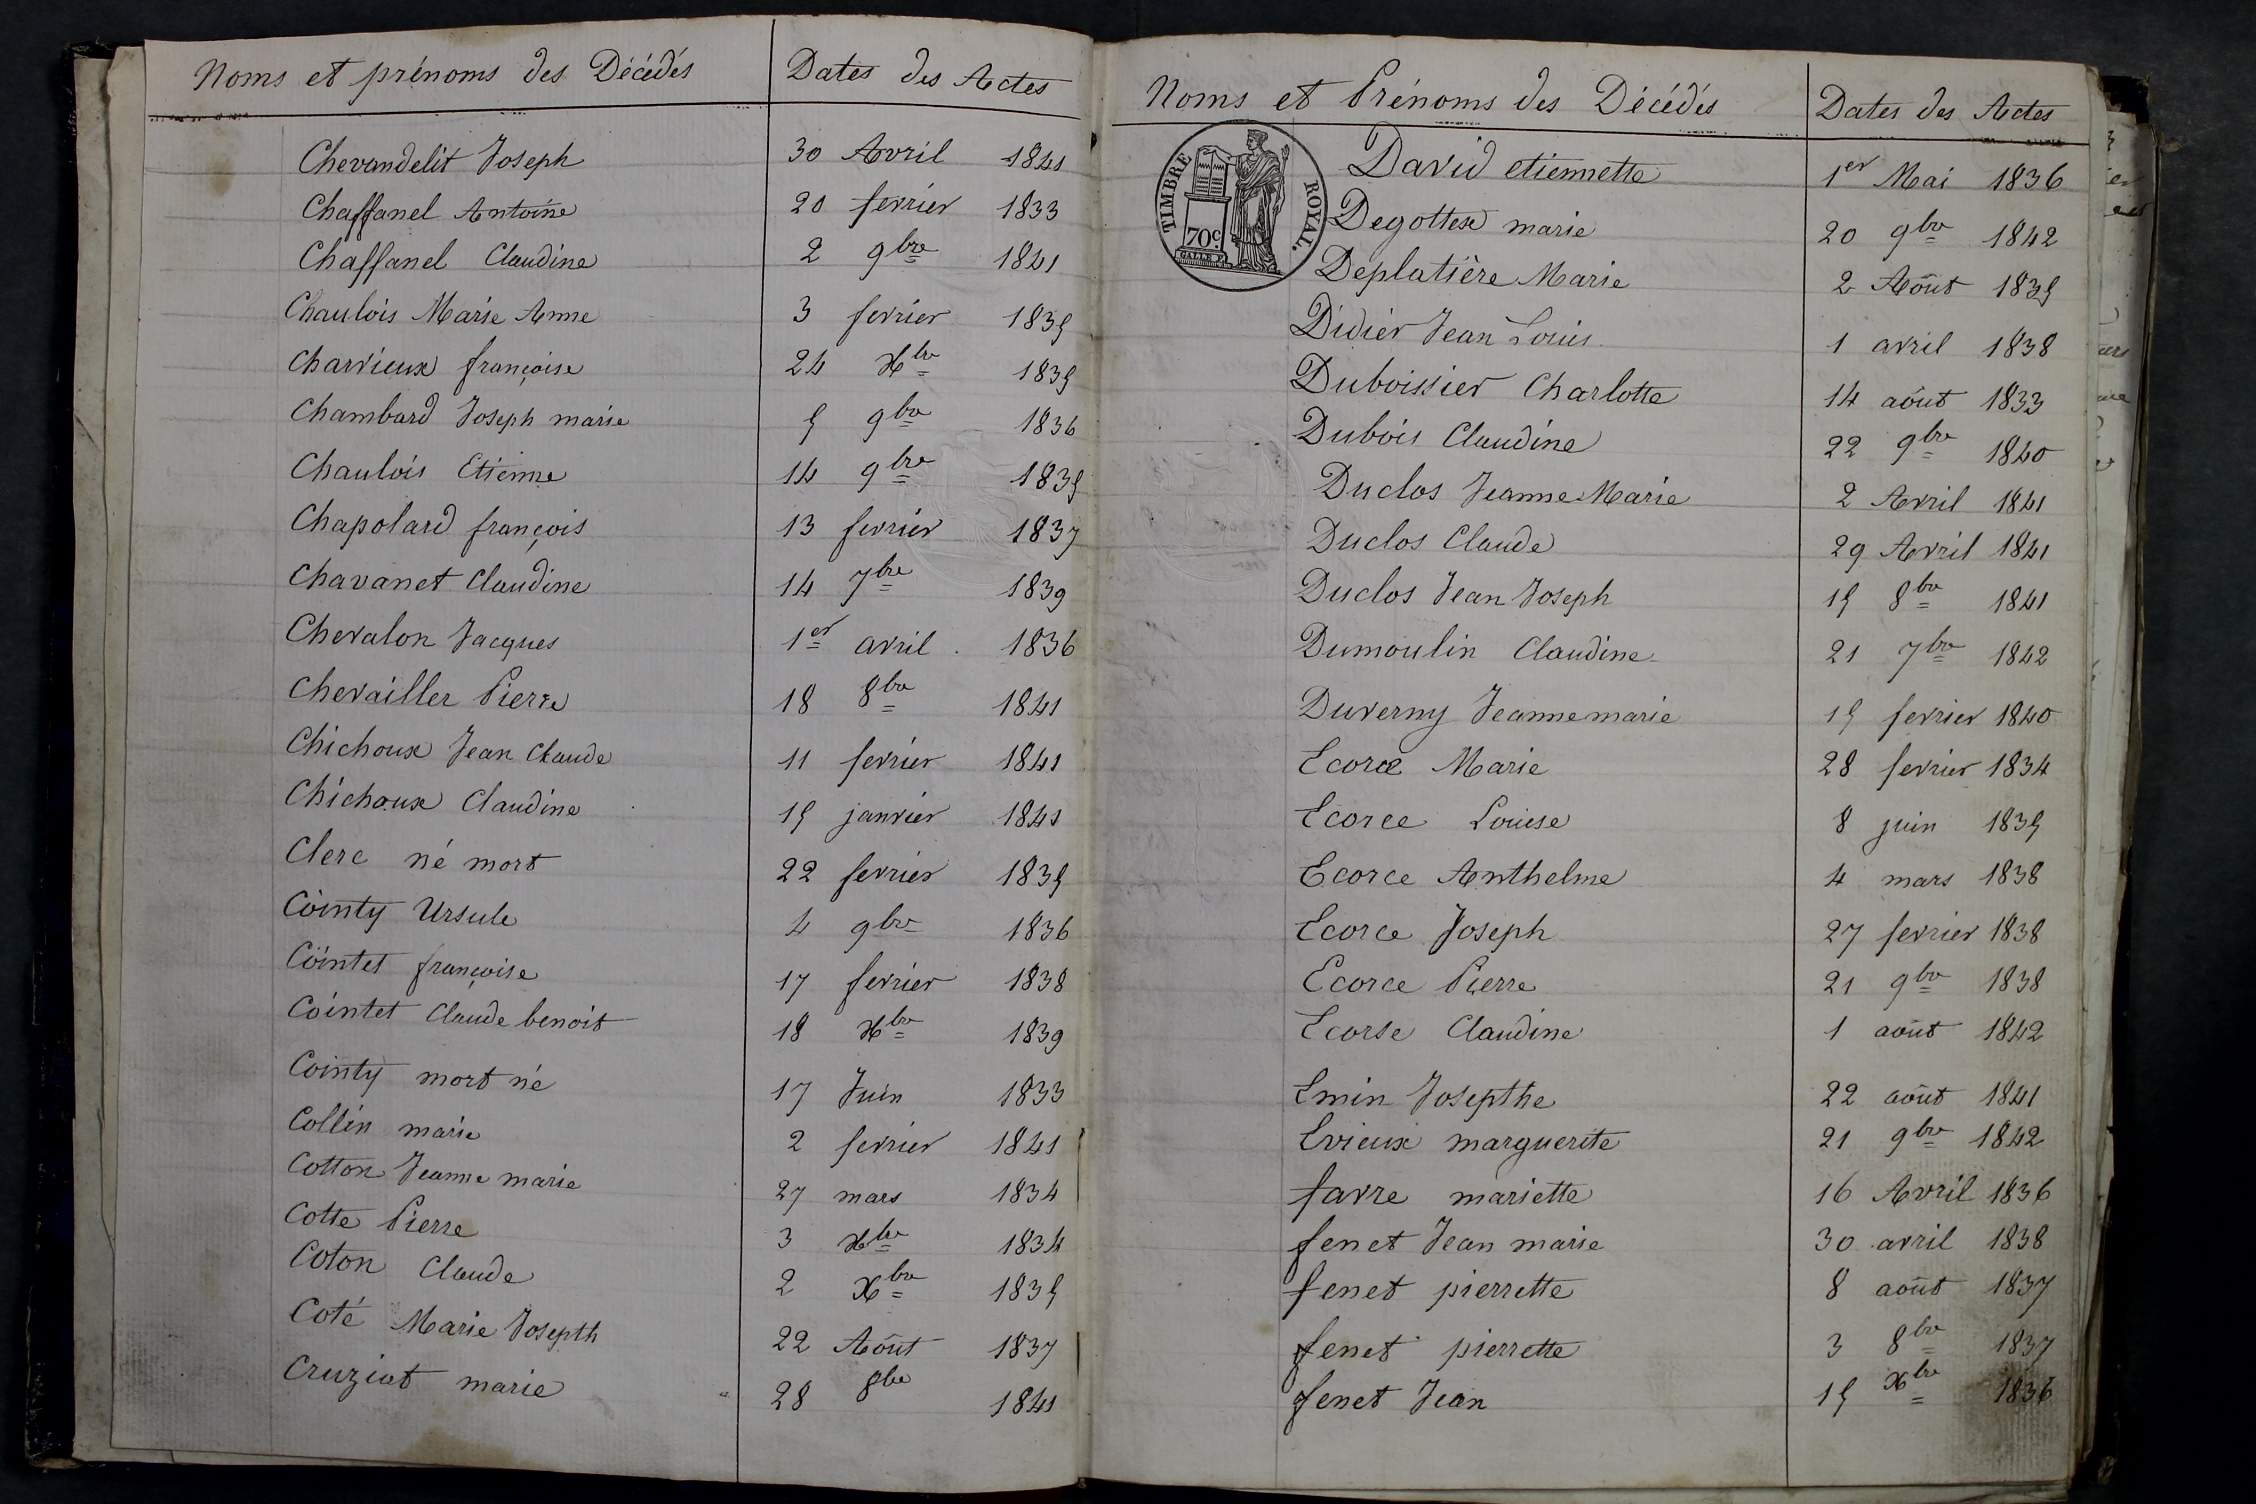 Noms et prénoms des Décédés Dates des Actes
Chevandelit Joseph 30 Avril 1841
Chaffanel Antoine 20 fevrier 1833
Chaffanel Claudine 2 9bre 1841
Chaulois Marie Anne 3 fevrier 1835
Charvieux françoise 24 Xbre 1835
Chambard Joseph marie 5 9bre 1836
Chaulois Etienne 14 9bre 1835
Chapolard françois 13 fevrier 1837
Chavanet Claudine 14 7bre 1839
Chevalon Jacques 1er avril 1836
Chevailler Pierre 18 8bre 1841
Chichoux Jean Claude 11 fevrier 1841
Chichoux Claudine 15 janvier 1841
Clerc né mort 22 fevrier 1835
Cointy Ursule 4 9bre 1836
Cointet françoise 17 fevrier 1838
Cointet Claude benoit 18 Xbre 1839
Cointy mort né 17 Juin 1833
Collin marie 2 fevrier 1841
Cotton Jeanne marie 27 mars 1834
Cotte Pierre 3 Xbre 1834
Coton Claude 2 Xbre 1835
Coté Marie Josepth 22 Août 1837
Cruziat marie 28 8bre 1841
Noms et Prénoms des Décédés Dates des Actes
TIMBRE ROYAL.
70c
David etiennette 1er Mai 1836
Degottex marie 20 9bre 1842
Deplatière Marie 2 Août 1835
Didier Jean Louis 1 avril 1838
Duboissier Charlotte 14 août 1833
Dubois Claudine 22 9bre 1840
Duclos Jeanne Marie 2 Avril 1841
Duclos Claude 29 Avril 1841
Duclos Jean Joseph 15 8bre 1841
Dumoulin Claudine 21 7bre 1842
Duverny Jeanne marie 15 fevrier 1840
Ecorce Marie 28 fevrier 1834
Ecorce Louise 8 juin 1835
Ecorce Anthelme 4 mars 1838
Ecorce Joseph 27 fevrier 1838
Ecorce Pierre 21 9bre 1838
Ecorse Claudine 1 août 1842
Emin Josepthe 22 août 1841
Evieux marguerite 21 9bre 1842
favre mariette 16 Avril 1836
fenet Jean marie 30 avril 1838
fenet pierrette 8 août 1837
fenet pierrette 3 8bre 1837
fenet Jean 15 Xbre 1836